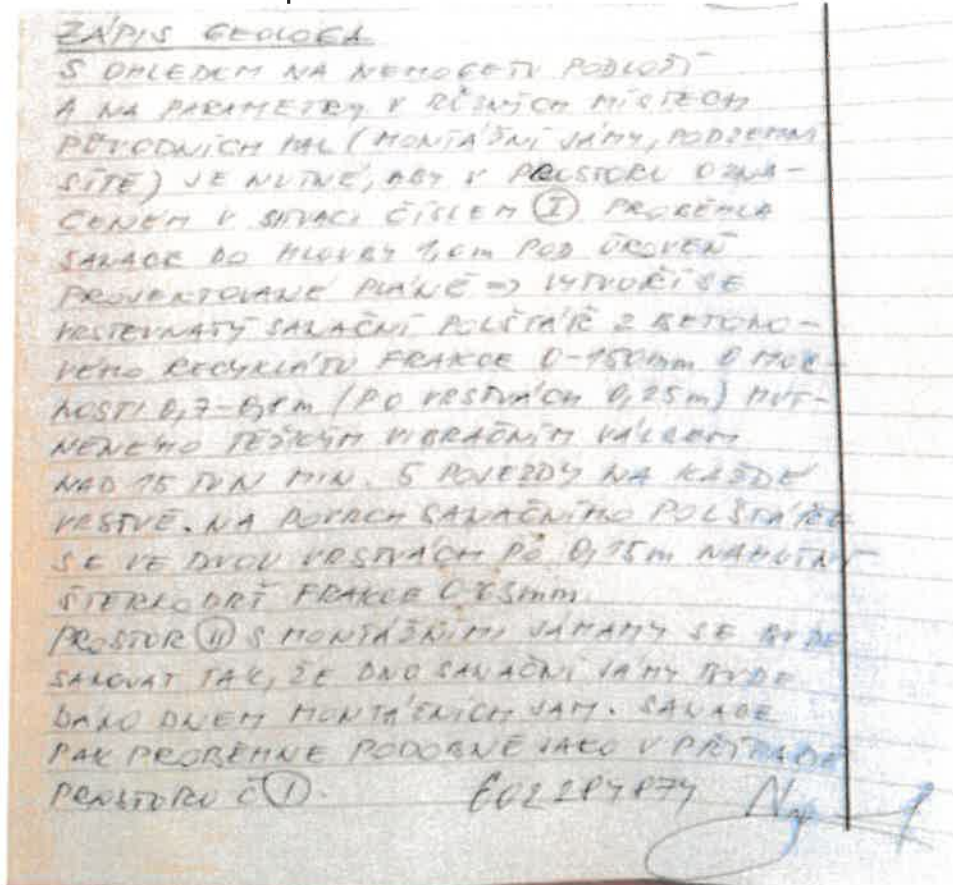 ZÁPIS GEOLOGA
S OHLEDEM NA NEMOCETU PODLOŽÍ
A NA PARAMETRY V RŮZNÝCH MÍSTECH
PŮVODNÍCH HAL (MONTÁŽNÍ JÁMY, PODZEMNÍ
SÍTĚ) JE NUTNÉ, ABY V PROSTORU OZNA-
ČENÉM V SITUACI ČÍSLEM I PROBĚHLA
SANACE DO HLOUBY 1,0m POD ÚROVEŇ
PROJEKTOVANÉ PLÁNĚ => VYTVOŘÍ SE
VRSTEVNATÝ SANAČNÍ POLŠTÁŘ Z BETONO-
VÉHO RECYKLÁTU FRAKCE 0-150mm O MOC
NOSTI 0,7-0,8m (PO VRSTVÁCH 0,25m) HUT-
NĚNÉHO TĚŽKÝM VIBRAČNÍM VÁLCEM
NAD 15 TUN MIN. 5 POJEZDY NA KAŽDÉ
VRSTVĚ. NA POVRCH SANAČNÍHO POLŠTÁŘE
SE VE DVOU VRSTVÁCH PO 0,15m NAHUTNÍ
ŠTĚRKODRŤ FRAKCE 0-63mm.
PROSTOR II S MONTÁŽNÍMI JÁMAMY SE BUDE
SANOVAT TAK, ŽE DNO SANAČNÍ JÁMY BUDE
DÁNO DNEM MONTÁŽNÍCH JAM. SANACE
PAK PROBĚHNE PODOBNĚ JAKO V PŘÍPADĚ
PROSTORU Č I. 602284874